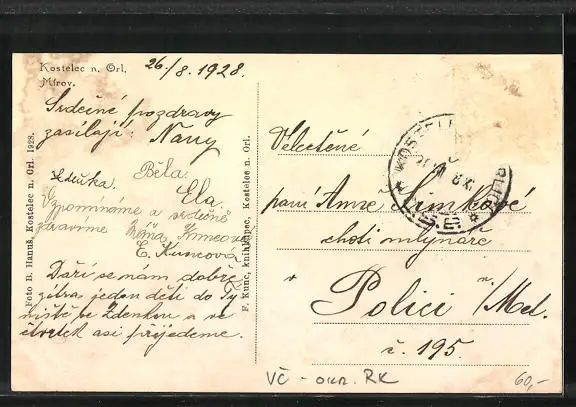 Kostelec n. Orl.
Mírov.
26./8. 1928.
Srdečné pozdravy
zasílají: Násy
Běla.
Zdeňka.
Ela.
Vzpomínáme a srdečně
zdravíme
E. Kuncová
Daří se nám dobře
zítra jedou děti do Tý
niště se Zdenkou a ve
čtvrtek asi přijedeme.
Foto B. Hanuš, Kostelec n. Orl. 1928.
F. Kunc, knihkupec, Kostelec n. Orl.
Velectěné
paní Anně Šimkové
choti mlynáře
v Polici n/Met.
č. 195.
VČ - okr. RK
60,-